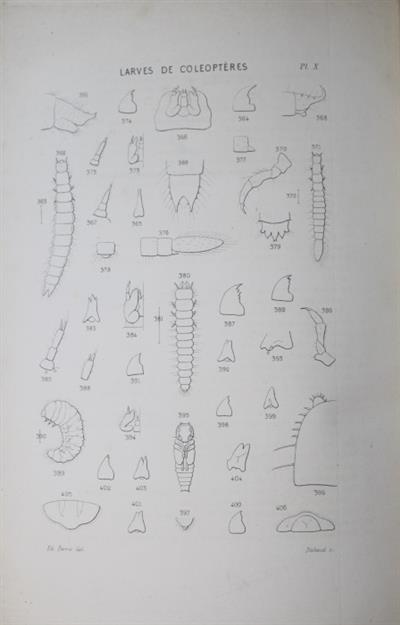 LARVES DE COLÉOPTÈRES Pl. X
374 366 364 368
361 375 373 388 377 370 371
363 367 365 372
376 379
378
380
383 384 381 387 389 386
385 388 391 392 393
390 394 395 398 399
389 402 403 404 396
405 401 397 400 406
del.